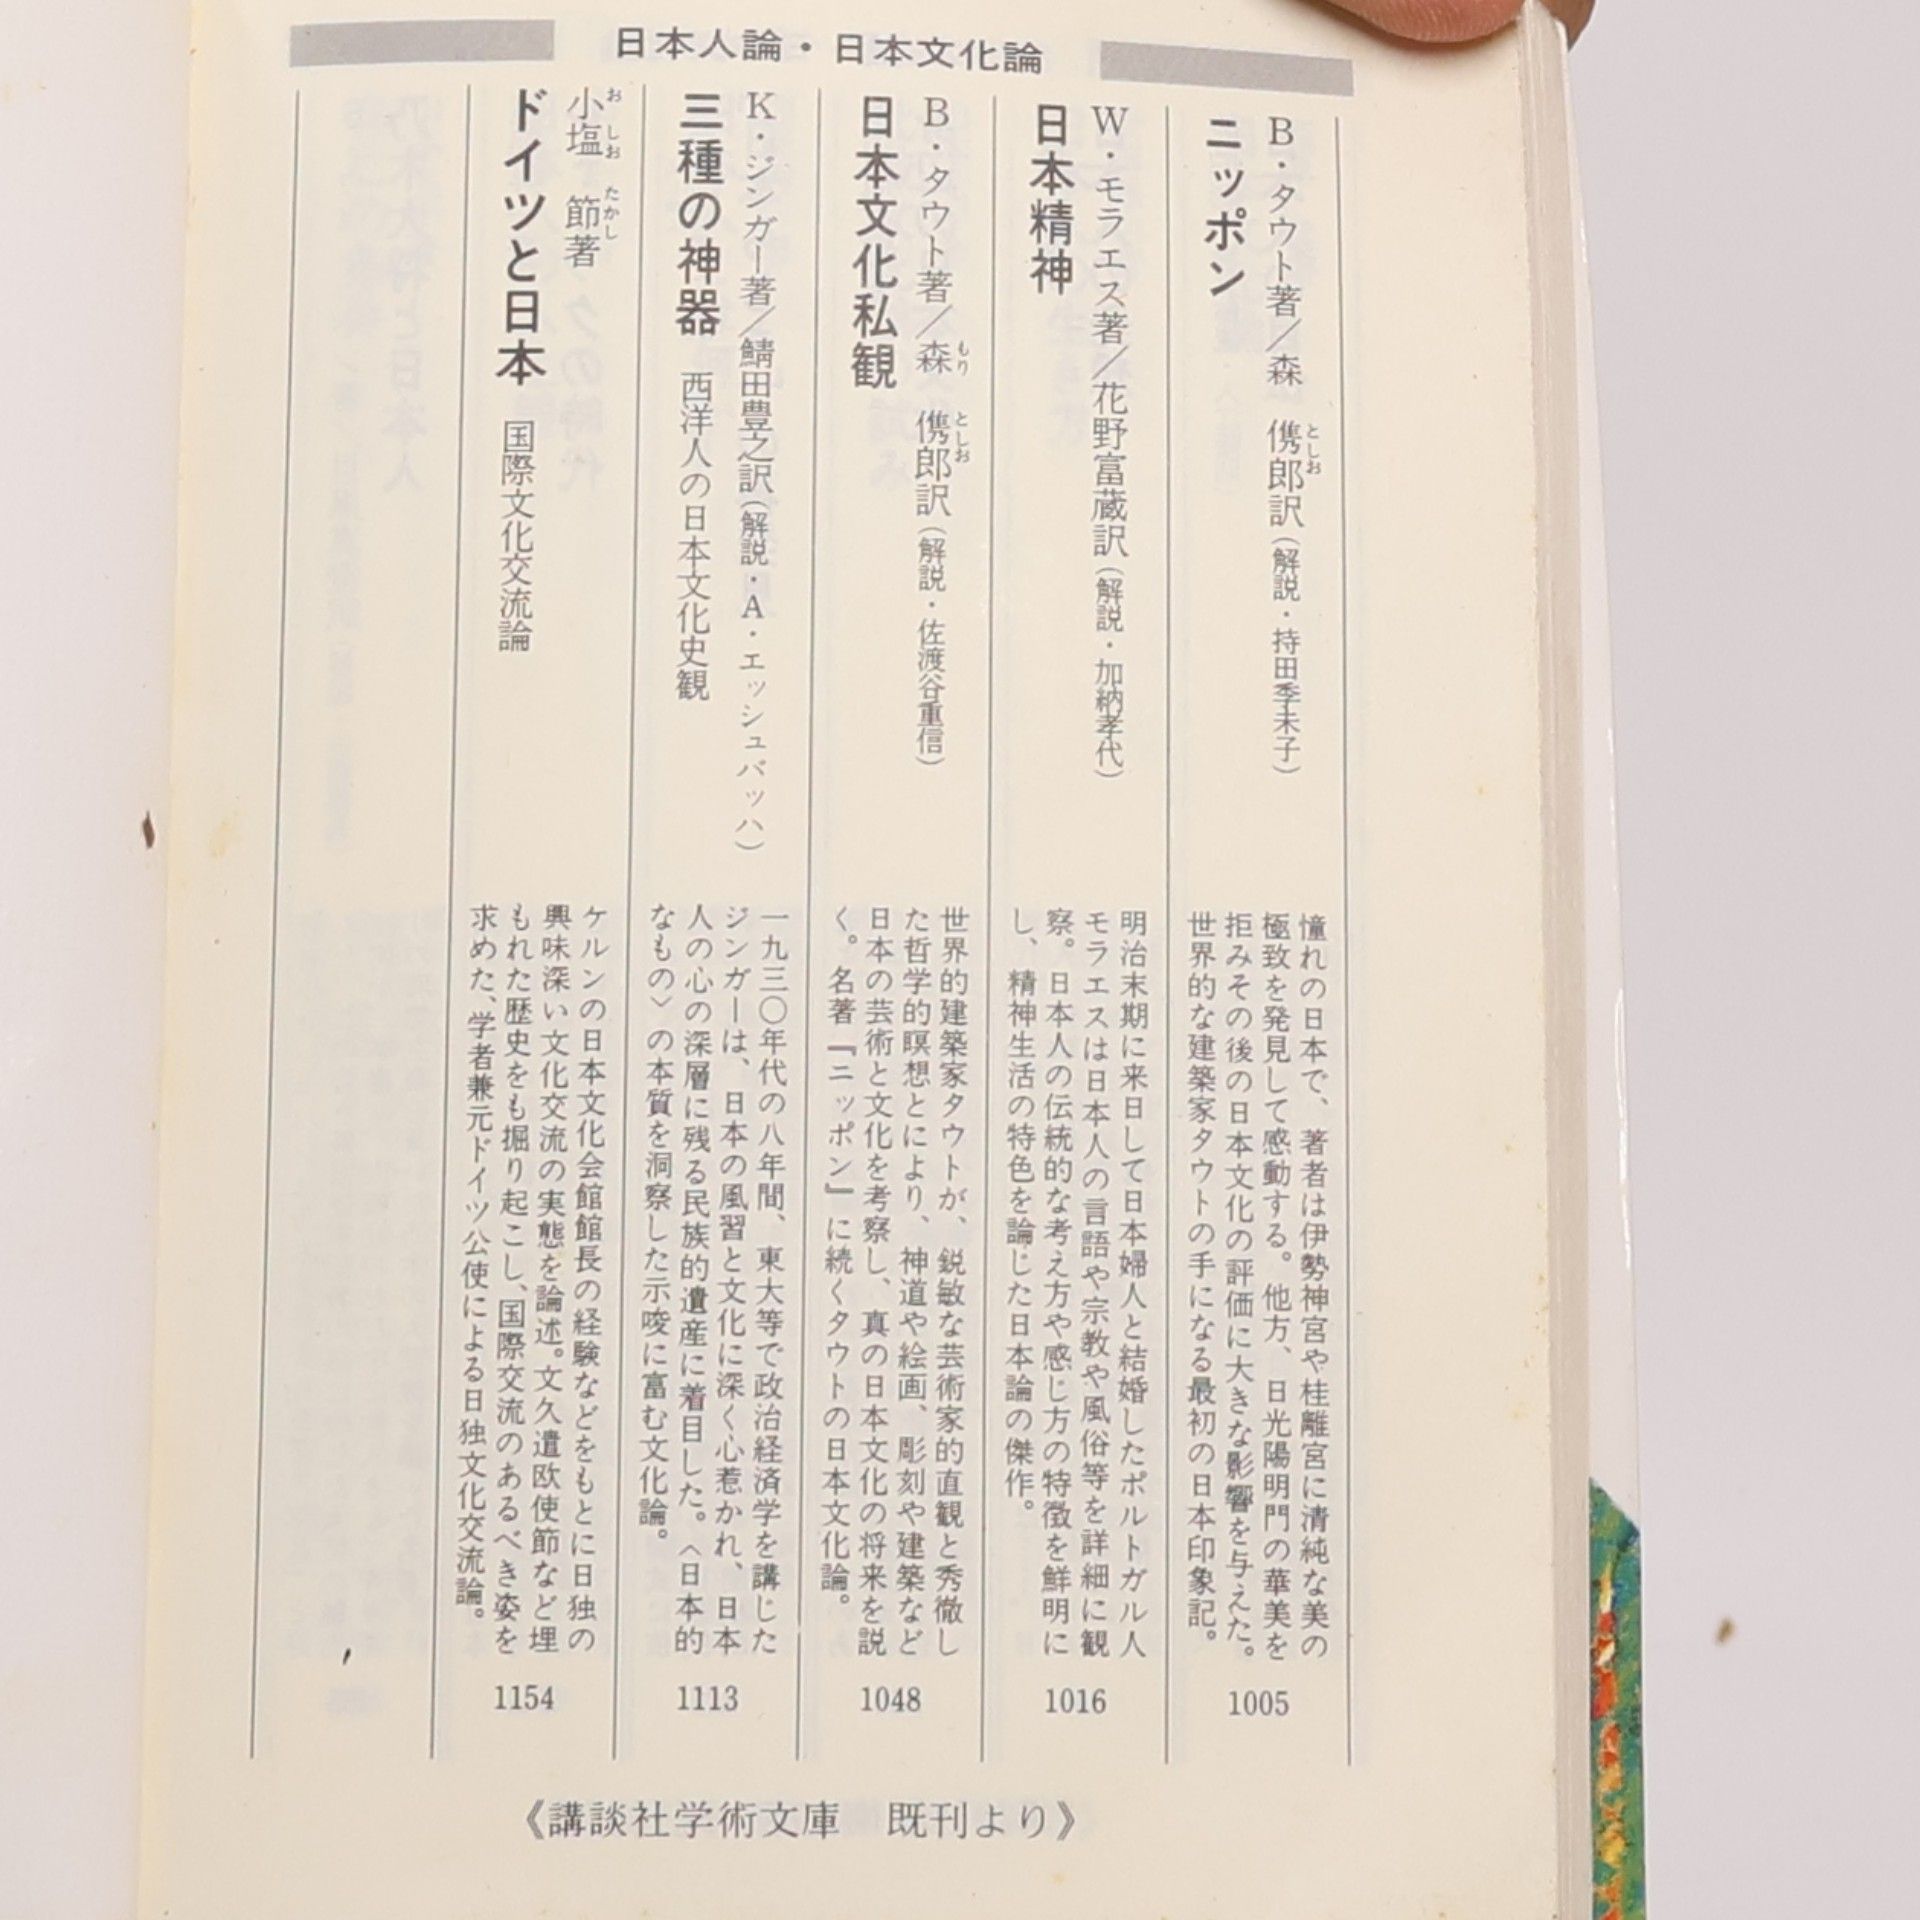 日本人論・日本文化論
B・タウト著／森 儁郎訳(解説・持田季未子)
としお
ニッポン
憧れの日本で、著者は伊勢神宮や桂離宮に清純な美の
極致を発見して感動する。他方、日光陽明門の華美を
拒みその後の日本文化の評価に大きな影響を与えた。
世界的な建築家タウトの手になる最初の日本印象記。
1005
W・モラエス著／花野富蔵訳(解説・加納孝代)
日本精神
明治末期に来日して日本婦人と結婚したポルトガル人
モラエスは日本人の言語や宗教や風俗等を詳細に観
察。日本人の伝統的な考え方や感じ方の特徴を鮮明に
し、精神生活の特色を論じた日本論の傑作。
1016
B・タウト著／森 儁郎訳(解説・佐渡谷重信)
もり としお
日本文化私観
世界的建築家タウトが、鋭敏な芸術家的直観と秀徹し
た哲学的瞑想とにより、神道や絵画、彫刻や建築など
日本の芸術と文化を考察し、真の日本文化の将来を説
く。名著『ニッポン』に続くタウトの日本文化論。
1048
K・ジンガー著／鯖田豊之訳(解説・A・エッシュバッハ)
三種の神器 西洋人の日本文化史観
一九三〇年代の八年間、東大等で政治経済学を講じた
ジンガーは、日本の風習と文化に深く心惹かれ、日本
人の心の深層に残る民族的遺産に着目した。〈日本的
なもの〉の本質を洞察した示唆に富む文化論。
1113
小塩 節著
おしお たかし
ドイツと日本 国際文化交流論
ケルンの日本文化会館館長の経験などをもとに日独の
興味深い文化交流の実態を論述。文久遣欧使節など埋
もれた歴史をも掘り起こし、国際交流のあるべき姿を
求めた、学者兼元ドイツ公使による日独文化交流論。
1154
《講談社学術文庫 既刊より》